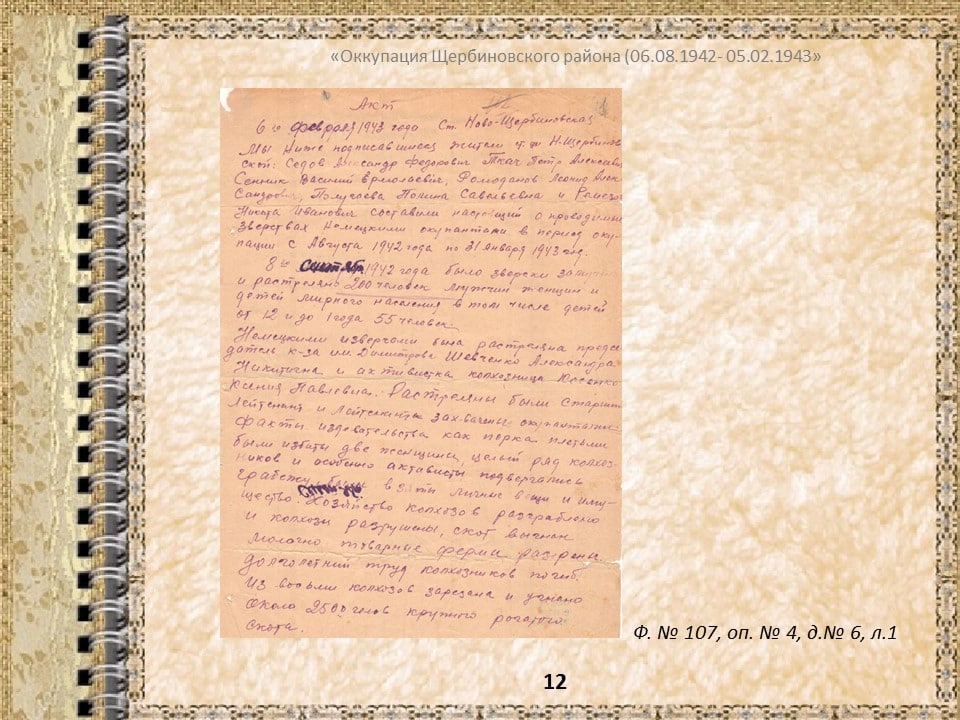 «Оккупация Щербиновского района (06.08.1942- 05.02.1943»
Акт
6го февраля 1943 года Ст. Ново-Щербиновская
Мы ниже подписавшиеся жители Н-Щербинов
ской: Седов Александр Федорович Ткач Петр Алексеев
Сенник Василий Ермолаевич, Фомоданов Леонид Алек
сандрович, Полугаева Полина Савельевна и
Никита Иванович составили настоящий о проводимых
зверствах немецкими окупантами в период оку-
пации с Августа 1942 года по 31 Января 1943 год.
8го Сентября 1942 года было зверски
и растреляно 200 человек мужчин женщин и
детей мирного населения в том числе детей
от 12 и до 1 года 55 человек
Немецкими извергами была растреляна предсе
датель к-за им. Димитрова Шевченко Александра
Никитична и активистка колхозница
Ксения Павловна. Растреляны были Старший
Лейтенант и Лейтенанты захвачены окупантами
Факты издевательства как порка плетьми
были избиты две женщины, целый ряд колхоз-
ников и особенно активисты подвергались
грабежу, были взяты личные вещи и иму-
щество. Хозяйство колхозов разграблено
и колхозы разрушены, скот выгнан
молочно товарные фермы разорены
долголетний труд колхозников погиб.
Из восьми колхозов зарезана и угнано
около 2500 голов крупного рогатого
скота.
Ф. № 107, оп. № 4, д.№ 6, л.1
12